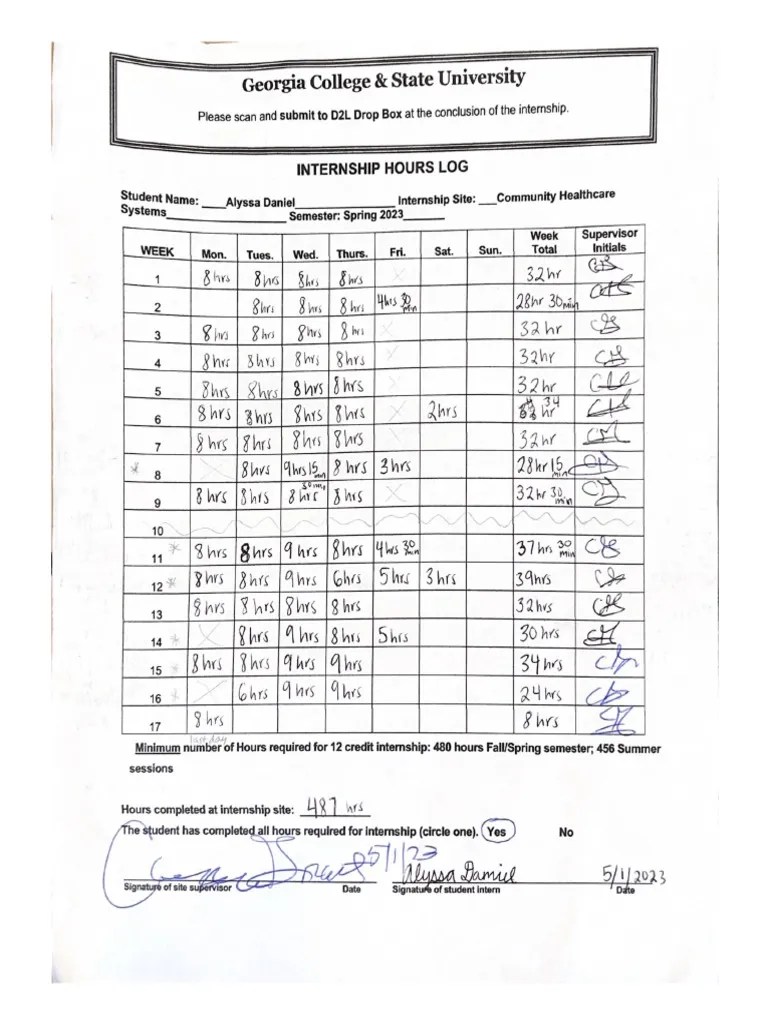 Georgia College & State University
Please scan and submit to D2L Drop Box at the conclusion of the internship.
INTERNSHIP HOURS LOG
Student Name: ____Alyssa Daniel__________________ Internship Site: ___Community Healthcare
Systems_____________________ Semester: Spring 2023_______
WEEK Mon. Tues. Wed. Thurs. Fri. Sat. Sun. Week Total Supervisor Initials
1 8 hrs 8hrs 8hrs 8hrs X 32hr
2 8hrs 8hrs 8hrs 4hrs 30 min 28hr 30min
3 8hrs 8hrs 8hrs 8hr X 32hr
4 8hrs 8hrs 8hrs 8hrs X 32hr
5 8hrs 8hrs 8hrs 8hrs X 32hr
6 8hrs 8hrs 8hrs 8hrs X 2hrs 34 hr
7 8hrs 8hrs 8hrs 8hrs X 32hr
* 8 X 8hrs 9hrs 15 min 8hrs 3hrs 28hr 15 min
9 8hrs 8hrs 8hrs 30 min 8hrs X 32hr 30 min
10
11 * 8hrs 8hrs 9hrs 8hrs 4hrs 30 min 37hrs 30 min
12 * 8hrs 8hrs 9hrs 6hrs 5hrs 3hrs 39hrs
13 8hrs 8hrs 8hrs 8hrs 32hrs
14 * X 8hrs 9hrs 8hrs 5hrs 30hrs
15 * 8hrs 8hrs 9hrs 9hrs 34hrs
16 * X 6hrs 9hrs 9hrs 24hrs
17 8hrs 8hrs
last day
Minimum number of Hours required for 12 credit internship: 480 hours Fall/Spring semester; 456 Summer
sessions
Hours completed at internship site: 487 hrs
The student has completed all hours required for internship (circle one). Yes No
5/1/23 Alyssa Daniel 5/1/2023
Signature of site supervisor Date Signature of student intern Date